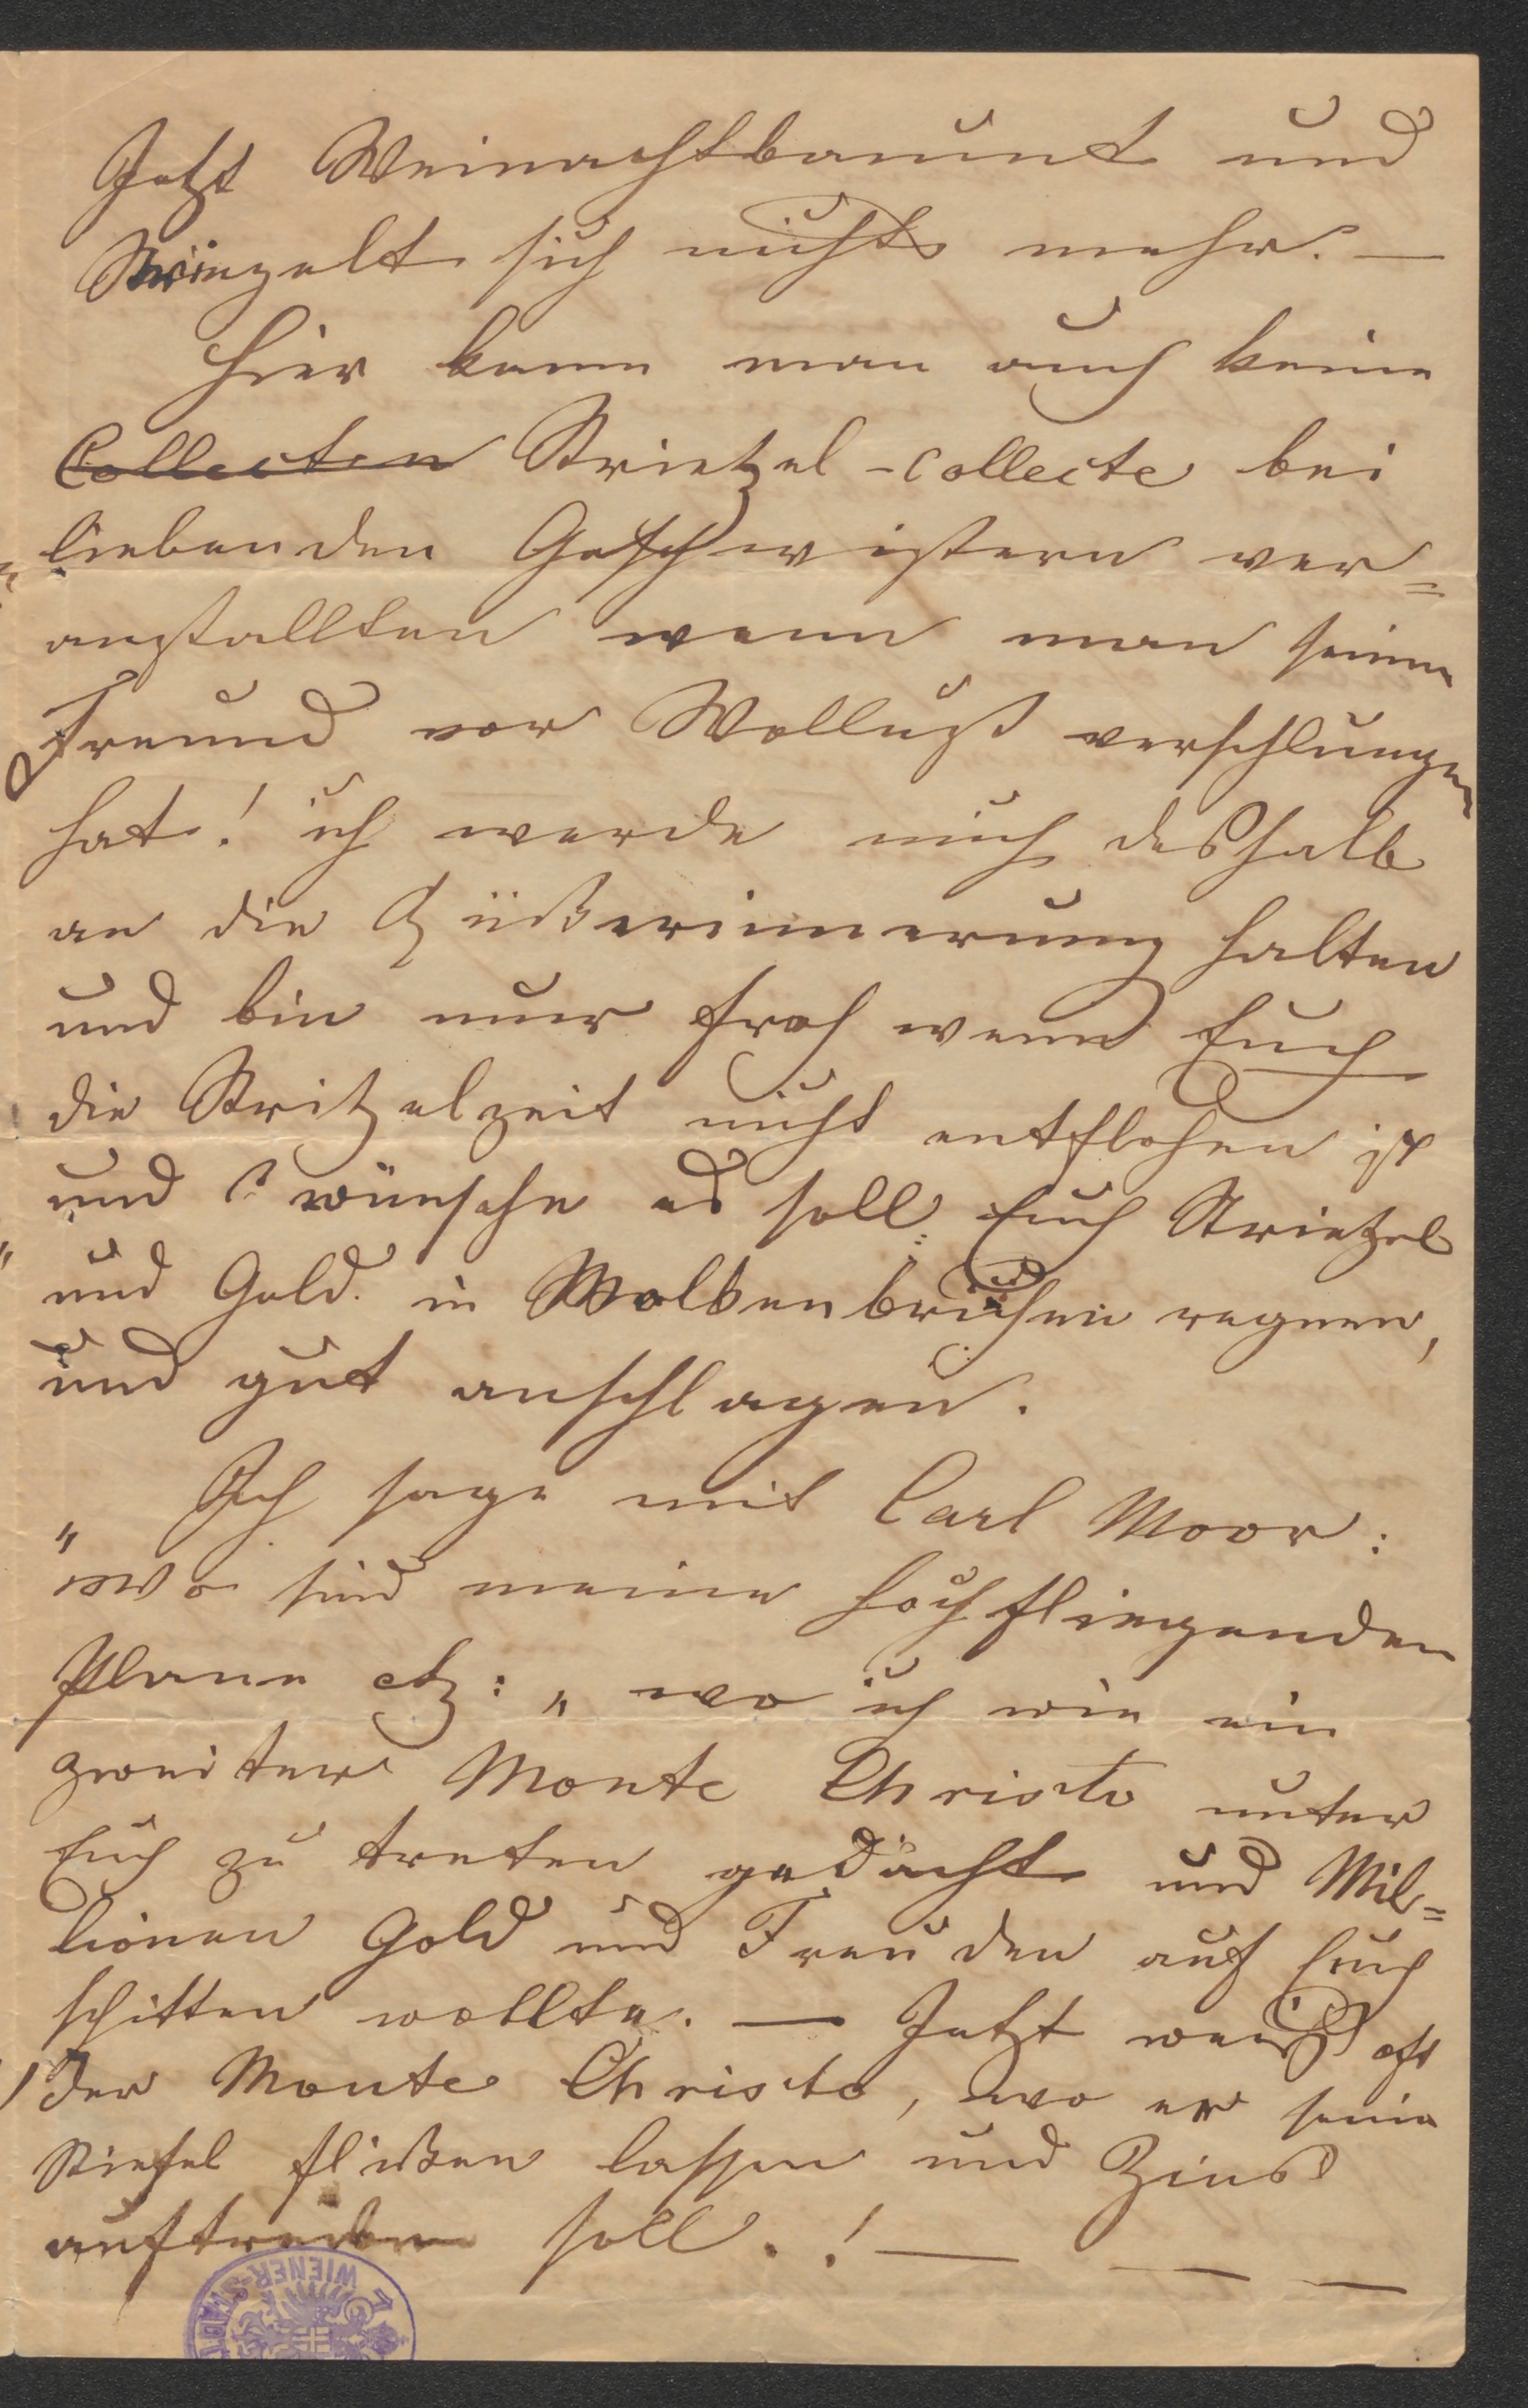 Jetzt Weinachtbaumt und
Striezelt sich nichts mehr. —
Hier kann man auch keine
Collecten Strietzel-collecte bei
liebenden Geschwistern ver=
anstallten wenn man seinen
Freund vor Wollust verschlungen
hat! ich werde mich deßhalb
an die Rückerinnerung halten
und bin nur froh wenn Euch
die Stritzelzeit nicht entflohen ist
und wünsche es soll Euch Strietzel
und Gold in Wolkenbrüchen regnen,
und gut anschlagen.
Ich sage mit Carl Moor:
"wo sind meine hochfliegenden
Plane etz: " wo ich wie ein
zweiter Monte Christo unter
Euch zu treten gedacht und Mil=
lionen Gold und Freuden auf Euch
schitten wollte. — Jetzt weiß oft
der Monte Christo, wo er seine
Stiefel flicken lassen und Zins
auftreiben soll.! — — —
WIENER-STADT